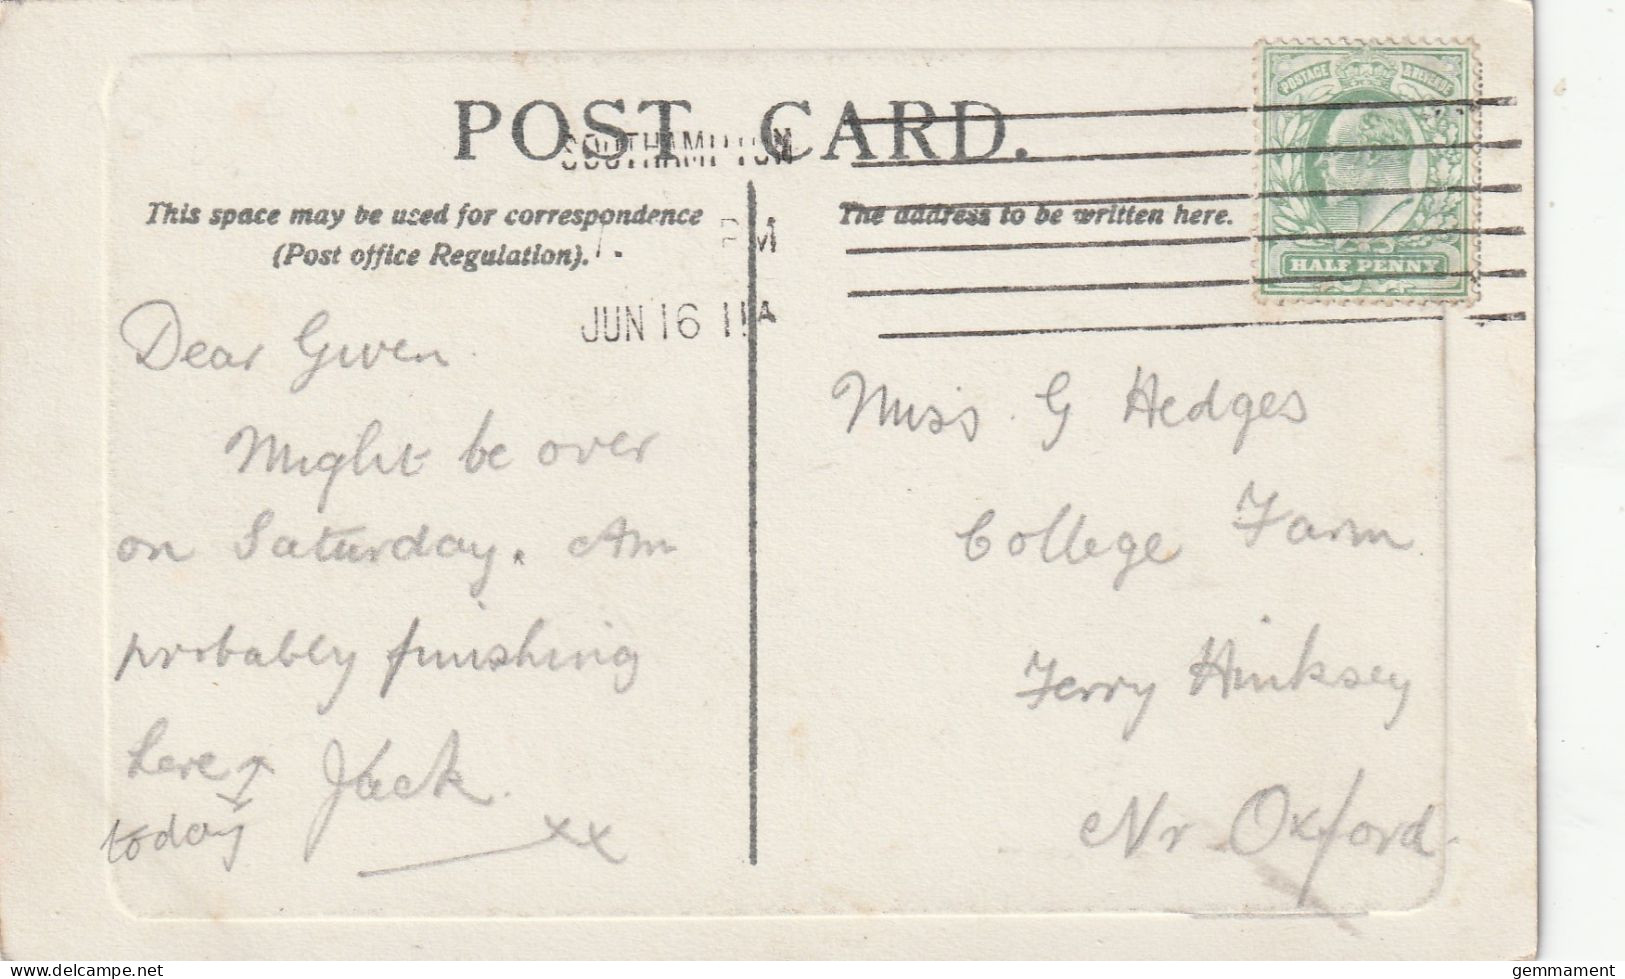 POST CARD.
SOUTHAMPTON
This space may be used for correspondence
(Post office Regulation).
The address to be written here.
7. PM
JUN 16 11A
POSTAGE & REVENUE
HALF PENNY
Dear Gwen
Might be over
on Saturday. Am
probably finishing
here
today
Jack.
xx
Miss. G Hedges
College Farm
Ferry Hinksey
Nr Oxford.
gemmament
delcampe.net